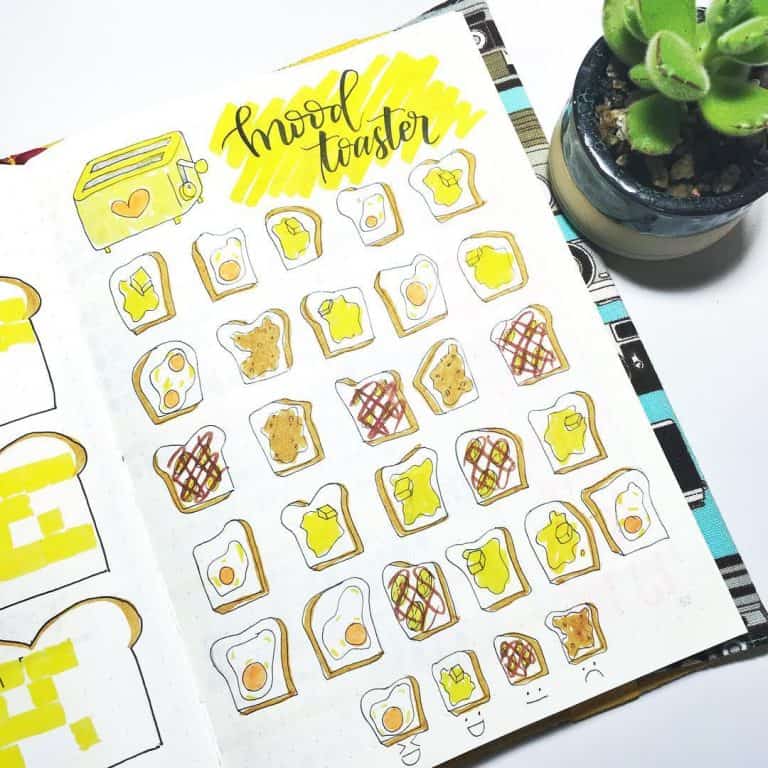 mood
toaster